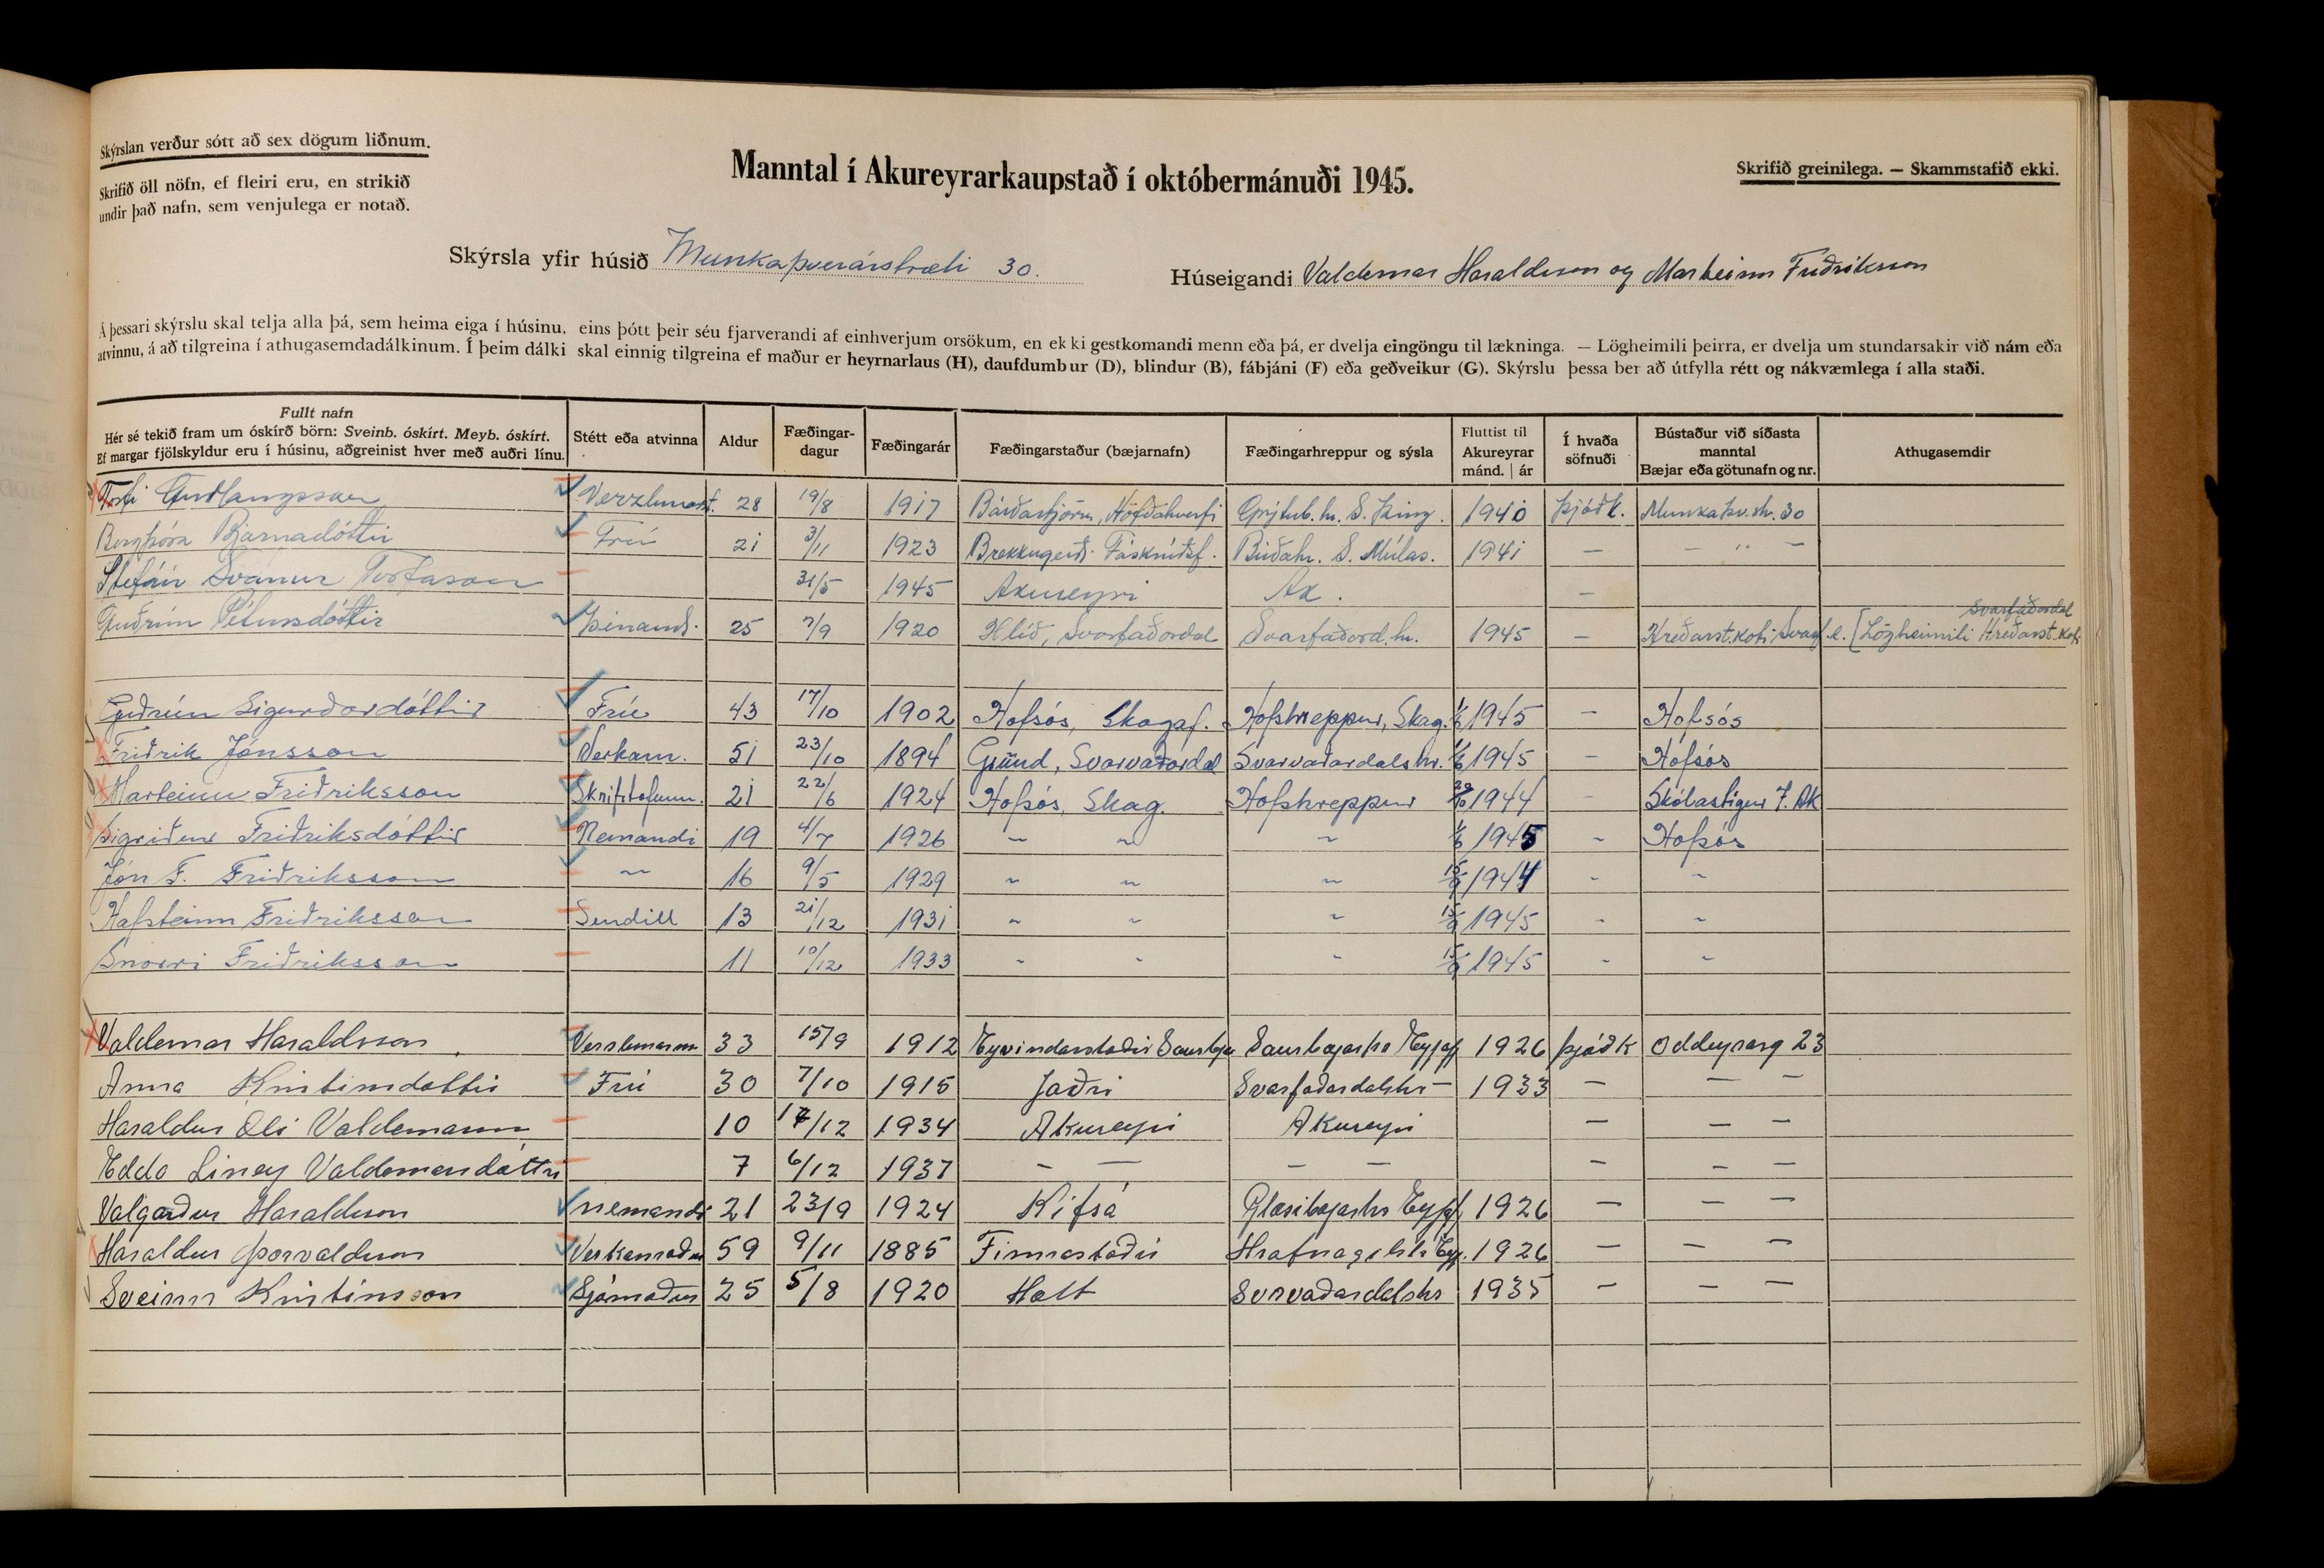 Skýrslan verður sótt að sex dögum liðnum.
Skrifið öll nöfn, ef fleiri eru, en strikið
undir það nafn, sem venjulega er notað.
Manntal í Akureyrarkaupstað í októbermánuði 1945.
Skrifið greinilega. — Skammstafið ekki.
Skýrsla yfir húsið Munkaþverárstræti 30.
Húseigandi Valdemar Haraldsson og Marteinn Friðriksson
Á þessari skýrslu skal telja alla þá, sem heima eiga í húsinu, eins þótt þeir séu fjarverandi af einhverjum orsökum, en ekki gestkomandi menn eða þá, er dvelja eingöngu til lækninga. — Lögheimili þeirra, er dvelja um stundarsakir við nám eða
atvinnu, á að tilgreina í athugasemdadálkinum. Í þeim dálki skal einnig tilgreina ef maður er heyrnarlaus (H), daufdumbur (D), blindur (B), fábjáni (F) eða geðveikur (G). Skýrslu þessa ber að útfylla rétt og nákvæmlega í alla staði.
Fullt nafn
Hér sé tekið fram um óskírð börn: Sveinb. óskírt. Meyb. óskírt.
Ef margar fjölskyldur eru í húsinu, aðgreinist hver með auðri línu.
Stétt eða atvinna
Aldur
Fæðingar-
dagur
Fæðingarár
Fæðingarstaður (bæjarnafn)
Fæðingarhreppur og sýsla
Fluttist til
Akureyrar
mánd. | ár
Í hvaða
söfnuði
Bústaður við síðasta
manntal
Bæjar eða götunafn og nr.
Athugasemdir
Torfi Guðlaugsson Verzlunarst. 28 19/8 1917 Bárðartjörn, Höfðahverfi Grýtub.hr. S. Þing. 1940 Þjóðk. Munkaþv.str. 30
Bergþóra Bjarnadóttir Frú 21 3/11 1923 Brekkugerði Fáskrúðsf. Búðahr. S. Múlas. 1941 — — " —
Stefán Svanur Torfason 31/5 1945 Akureyri Ak. —
Guðrún Pétursdóttir Þinand. 25 7/9 1920 Hlíð, Svarfaðardal Svarfaðard.hr. 1945 — Hreðarst.koti Svarf. [Lögheimili Hreiðarst.koti
Svarfaðardal
Guðrún Sigurðardóttir Frú 43 17/10 1902 Hofsós, Skagaf. Hofshreppur, Skag. 1/6 1945 – Hofsós
Friðrik Jónsson Verkam. 51 23/10 1894 Grund, Svarvaðardal Svarvaðardalshr. 1/6 1945 – Hofsós
Marteinn Friðriksson Skrifstofum. 21 22/6 1924 Hofsós, Skag. Hofshreppur 1944 – Skólastígur 7. Ak
Sigríður Friðriksdóttir Nemandi 19 4/7 1926 ~ ~ ~ 1/6 1945 – Hofsós
Jón F. Friðriksson ~ 16 9/5 1929 ~ ~ ~ 15/9 1944 – ~
Hafsteinn Friðriksson Sendill 13 21/12 1931 ~ ~ ~ 15/9 1945 – ~
Snorri Friðriksson 11 10/12 1933 ~ ~ ~ 15/9 1945 – ~
Valdemar Haraldsson Verslunarm 33 15/9 1912 Eyvindarstaðir Saurbæ Saurbæjarhr Eyjaf 1926 þjóðk Oddeyrarg 23
Anna Kristinsdóttir Frú 30 7/10 1915 Jaðri Svarfaðardalshr — 1933 — — —
Haraldur Óli Valdemarss 10 17/12 1934 Akureyri Akureyri — — —
Edda Líney Valdemarsdóttir 7 6/12 1937 — — — — — — —
Valgarður Haraldsson nemandi 21 23/9 1924 Kífsá Glæsibæjarhr Eyjaf 1926 — — —
Haraldur Þorvaldsson Verkamaður 59 9/11 1885 Finnastaðir Hrafnagilshr Eyj. 1926 — — —
Sveinn Kristinsson Sjómaður 25 5/8 1920 Holt Svarvaðardalshr 1935 — — —